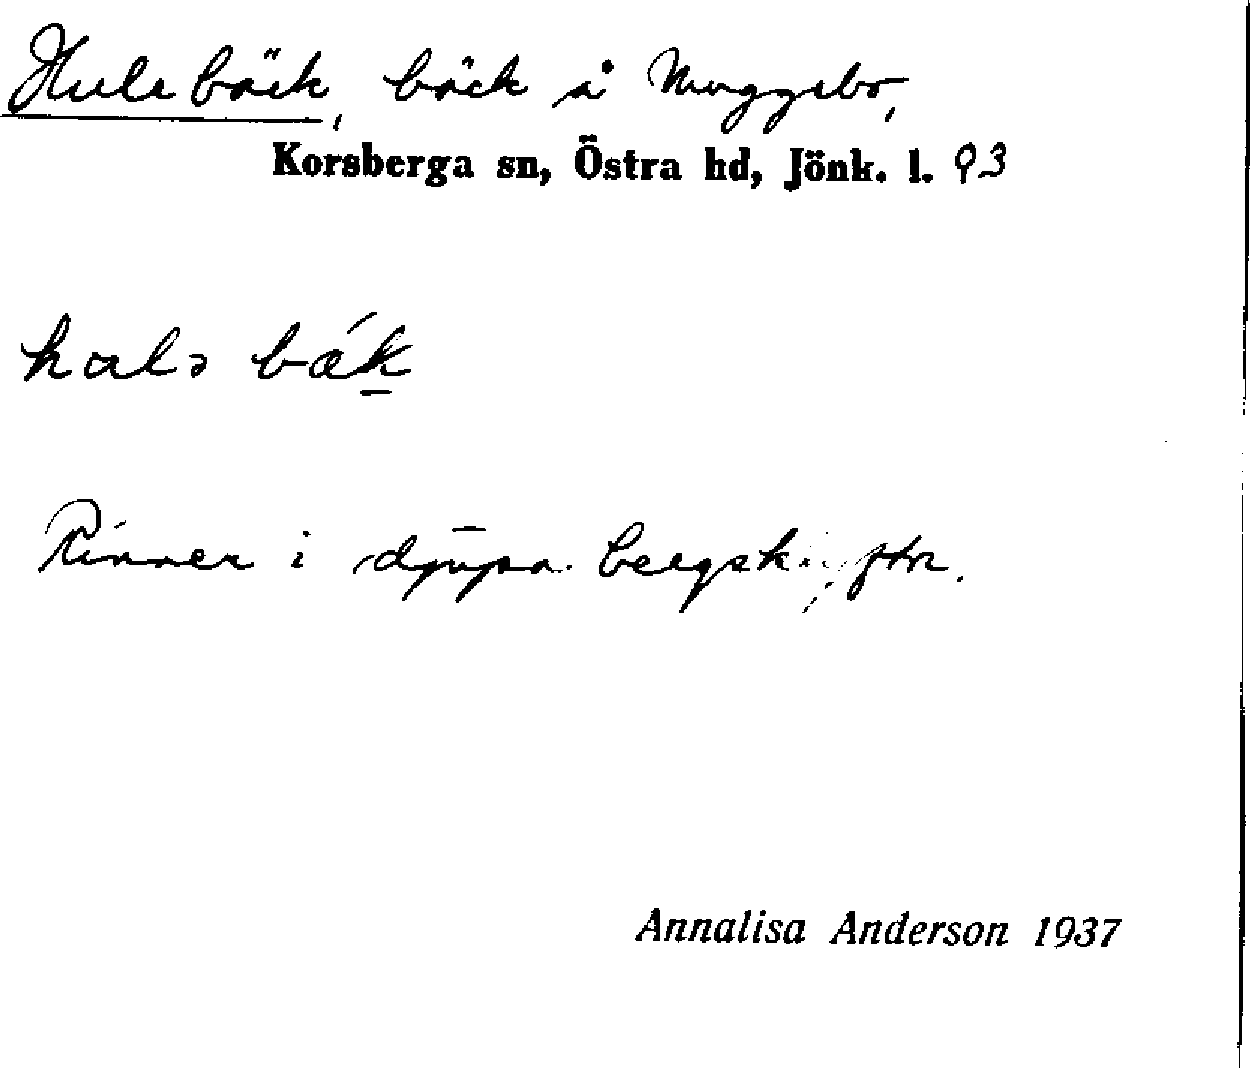 Hulebäck, bäck å Muggebo,
Korsberga sn, Östra hd, Jönk. l. 93
halə bǽk
Rinner i djupa
Annalisa Anderson 1937